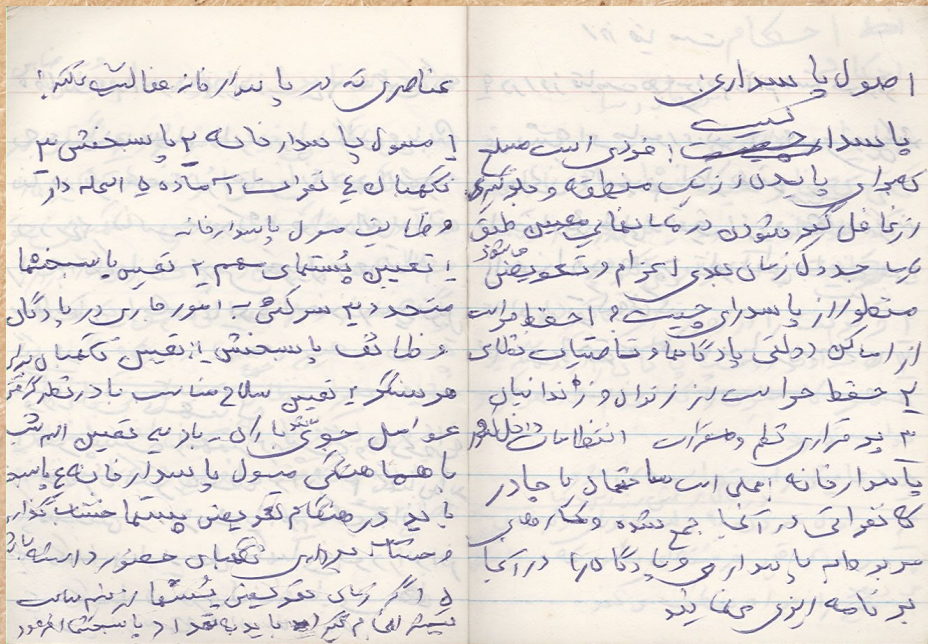 اصول پاسداری
کیست
پاسدار؛ فردی است مسلح
که برای پاییدن از یک منطقه و جلوگیری
از غافل گیر نشدن در زمانهای معین طبق
یک جدول زمان بندی اعزام و تعویض میشود
منظور از پاسداری چیست؟ ۱ حفظ حراست
از اماکن دولتی پادگانها و تاسیسات نظامی
۲ حفظ حراست از زندان و زندانیان
۳ بر قراری نظم و مقررات انتظامات داخل
پاسدارخانه؛ محلی است ساختمان یا چادر
که نفراتی در آنجا جمع شده و کارهای
مربوط به پاسداری و پادگان را در آنجا
برنامه ریزی می نمایند
عناصری که در پاسدارخانه فعالیت میکنند؛
۱ مسول پاسدارخانه ۲ پاسبخش ۳
نگهبان ۴ نفرات آماده ۵ اسلحه دار
وظایف مسول پاسدارخانه
۱ تعیین پُستهای مهم ۲ تعیین پاسبخشها
متعدد ۳ سرکشی به امور جاری در پادگان
وظائف پاسبخش ۱ـ تعیین نگهبان برای
هر سنگر ۲ تعیین سلاح مناسب با در نظر گرفتن
عوامل جوی باران ـ باد ۳ تعیین اسم شب
با هماهنگی مسول پاسدارخانه ۴ پاسبخش
باید در هنگام تعویض پستها خشاب گذاری
و خشاب برداری نگهبان حضور داشته باشد
۵ اگر زمان تعویض پُستها از نیم ساعت
بیشتر انجام گیرد باید به تعداد پاسبخش افزود